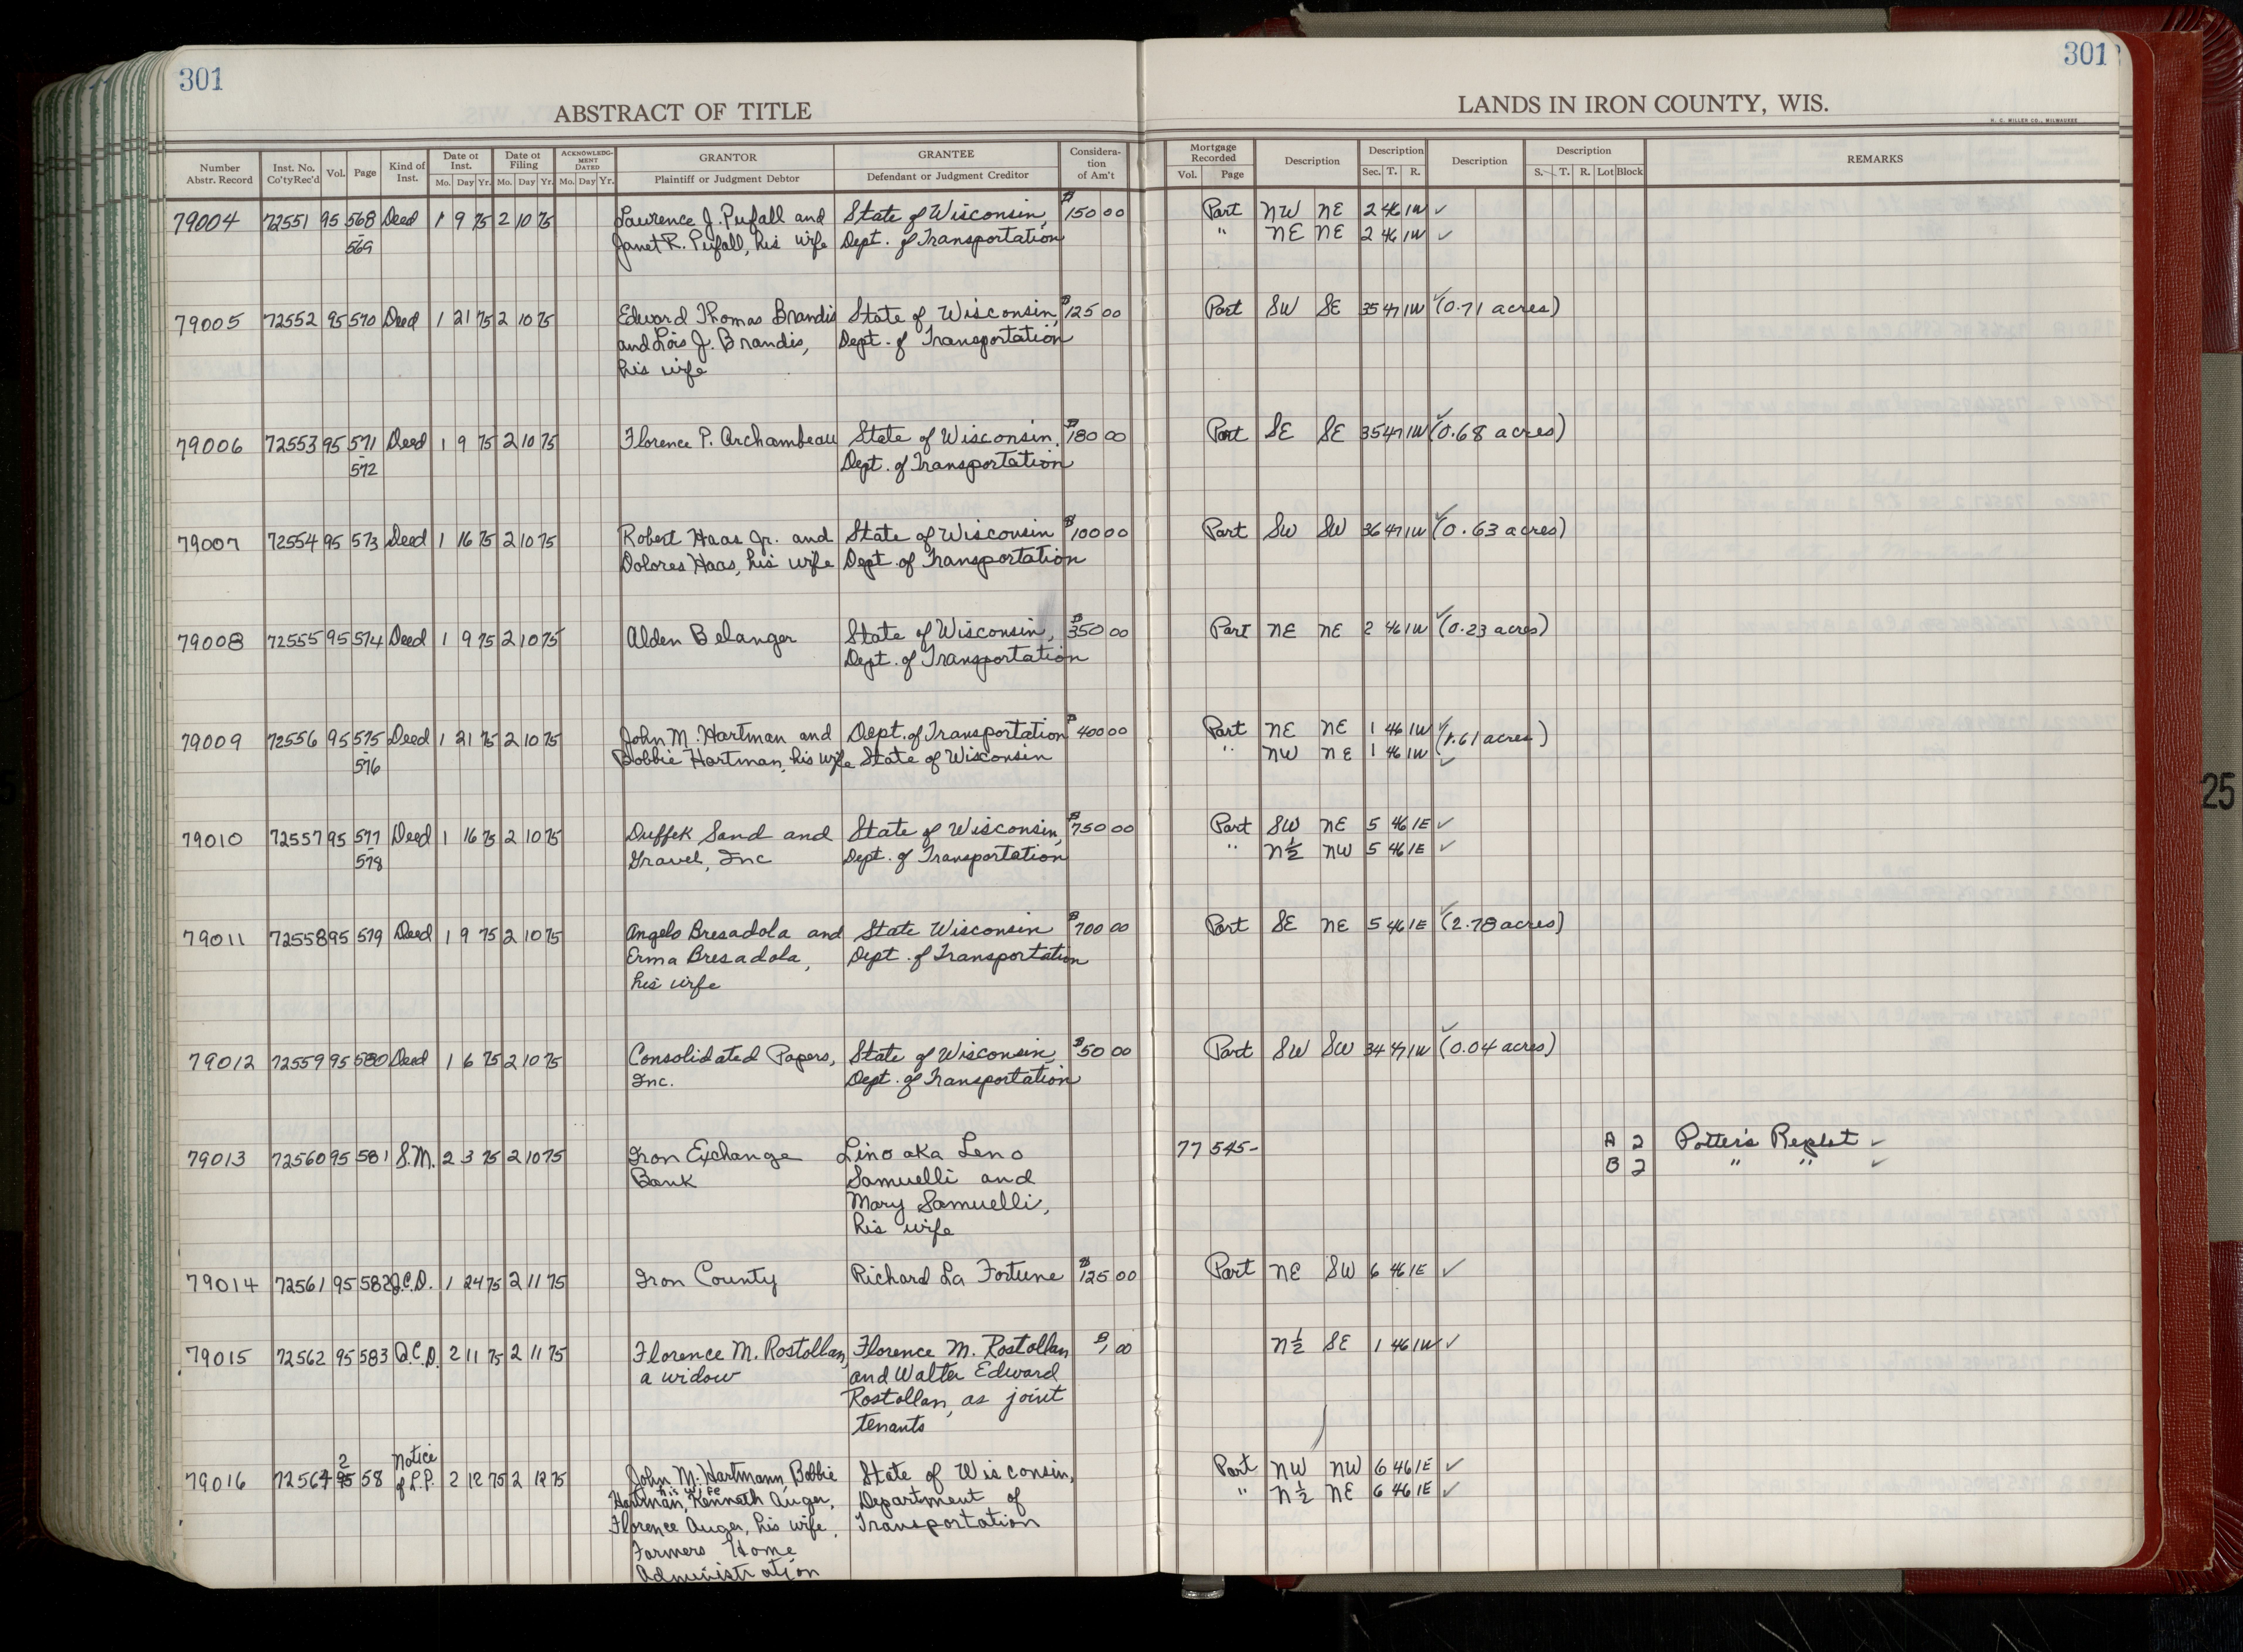 301
301
ABSTRACT OF TITLE
LANDS IN IRON COUNTY, WIS.
H. C. MILLER CO., MILWAUKEE
Number Abstr. Record | Inst. No. Co'ty Rec'd | Vol. | Page | Kind of Inst. | Date of Inst. Mo. Day Yr. | Date of Filing Mo. Day Yr. | ACKNOWLEDGMENT DATED Mo. Day Yr. | GRANTOR Plaintiff or Judgment Debtor | GRANTEE Defendant or Judgment Creditor | Consideration of Am't | Mortgage Recorded Vol. Page | Description | Description Sec. T. R. | Description | Description S. T. R. Lot Block | REMARKS
79004 72551 95 568 Deed 1 9 75 2 10 75 Lawrence J. Pufall and State of Wisconsin, $150 00 Part NW NE 2 46 1W ✓
- 569 Janet R. Pufall, his wife Dept. of Transportation " NE NE 2 46 1W ✓
79005 72552 95 570 Deed 1 21 75 2 10 75 Edward Thomas Brandis State of Wisconsin, $125 00 Part SW SE 35 47 1W ✓ (0.71 acres)
and Lois J. Brandis, Dept. of Transportation
his wife
79006 72553 95 571 Deed 1 9 75 2 10 75 Florence P. Archambeau State of Wisconsin, $180 00 Part SE SE 35 47 1W ✓ (0.68 acres)
- 572 Dept. of Transportation
79007 72554 95 573 Deed 1 16 75 2 10 75 Robert Haas Jr. and State of Wisconsin $100 00 Part SW SW 36 47 1W ✓ (0.63 acres)
Dolores Haas, his wife Dept. of Transportation
79008 72555 95 574 Deed 1 9 75 2 10 75 Alden Belanger State of Wisconsin, $350 00 Part NE NE 2 46 1W ✓ (0.23 acres)
Dept. of Transportation
79009 72556 95 575 Deed 1 21 75 2 10 75 John M. Hartman and Dept. of Transportation $400 00 Part NE NE 1 46 1W ✓ (1.61 acres)
- 576 Bobbie Hartman, his wife State of Wisconsin " NW NE 1 46 1W ✓
79010 72557 95 577 Deed 1 16 75 2 10 75 Duffek Sand and State of Wisconsin, $750 00 Part SW NE 5 46 1E ✓
- 578 Gravel, Inc Dept. of Transportation " N½ NW 5 46 1E ✓
79011 72558 95 579 Deed 1 9 75 2 10 75 Angelo Bresadola and State Wisconsin $700 00 Part SE NE 5 46 1E ✓ (2.78 acres)
Erma Bresadola, Dept. of Transportation
his wife
79012 72559 95 580 Deed 1 6 75 2 10 75 Consolidated Papers, State of Wisconsin, $50 00 Part SW SW 34 47 1W ✓ (0.04 acres)
Inc. Dept. of Transportation
79013 72560 95 581 S.M. 2 3 75 2 10 75 Iron Exchange Lino aka Leno 77 545- A 2 Potter's Replat ✓
Bank Samuelli and B 2 " " ✓
Mary Samuelli,
his wife
79014 72561 95 582 Q.C.D. 1 24 75 2 11 75 Iron County Richard La Fortune $125 00 Part NE SW 6 46 1E ✓
79015 72562 95 583 Q.C.D. 2 11 75 2 11 75 Florence M. Rostollan, Florence M. Rostollan $1 00 N½ SE 1 46 1W ✓
a widow and Walter Edward
Rostollan, as joint
tenants
79016 72564 2 95 58 Notice of L.P. 2 12 75 2 12 75 John M. Hartmann, Bobbie State of Wisconsin, Part NW NW 6 46 1E ✓
Hartman, his wife Kenneth Auger, Department of " N½ NE 6 46 1E ✓
Florence Auger, his wife, Transportation
Farmers Home
Administration
25